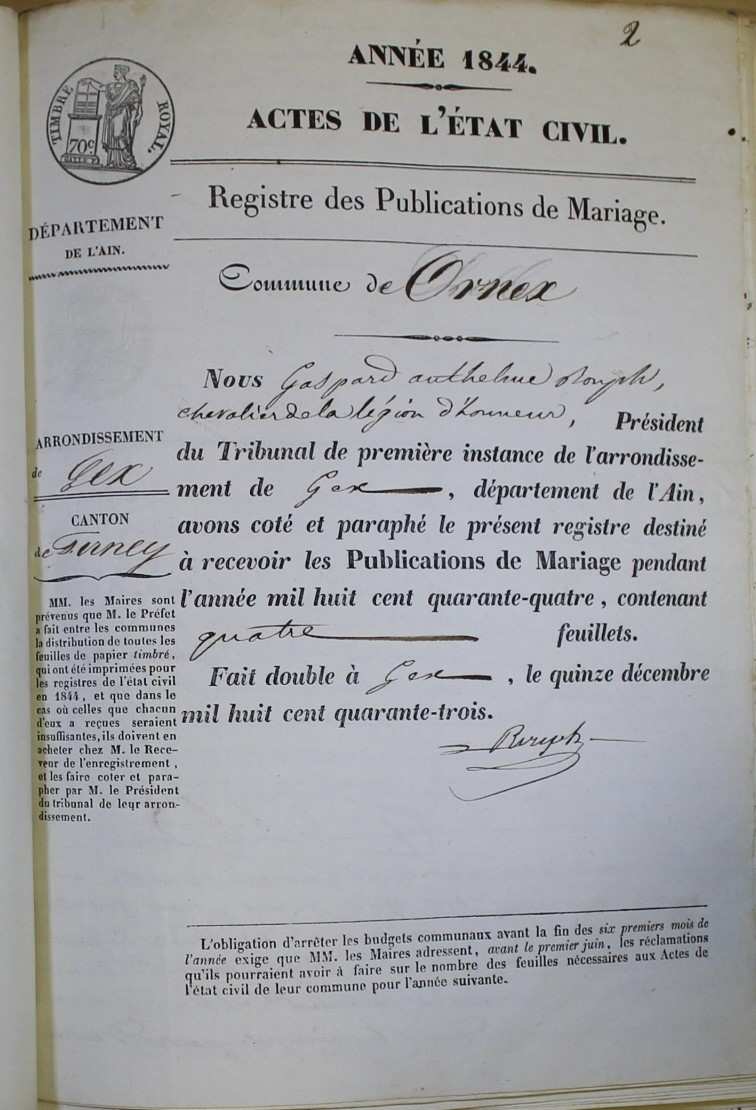 2
ANNÉE 1844.
ACTES DE L'ÉTAT CIVIL.
TIMBRE ROYAL.
70c
Registre des Publications de Mariage.
DÉPARTEMENT
DE L'AIN.
Commune de Ornex
Nous Gaspard anthelme
chevalier de la légion d'honneur, Président
du Tribunal de première instance de l'arrondisse-
ment de Gex, département de l'Ain,
avons coté et paraphé le présent registre destiné
à recevoir les Publications de Mariage pendant
l'année mil huit cent quarante-quatre, contenant
quatre feuillets.
Fait double à Gex, le quinze décembre
mil huit cent quarante-trois.
ARRONDISSEMENT
de Gex
CANTON
de Ferney
MM. les Maires sont
prévenus que M. le Préfet
a fait entre les communes
la distribution de toutes les
feuilles de papier timbré,
qui ont été imprimées pour
les registres de l'état civil
en 1844, et que dans le
cas où celles que chacun
d'eux a reçues seraient
insuffisantes, ils doivent en
acheter chez M. le Rece-
veur de l'enregistrement,
et les faire coter et para-
pher par M. le Président
du tribunal de leur arron-
dissement.
L'obligation d'arrêter les budgets communaux avant la fin des six premiers mois de
l'année exige que MM. les Maires adressent, avant le premier juin, les réclamations
qu'ils pourraient avoir à faire sur le nombre des feuilles nécessaires aux Actes de
l'état civil de leur commune pour l'année suivante.